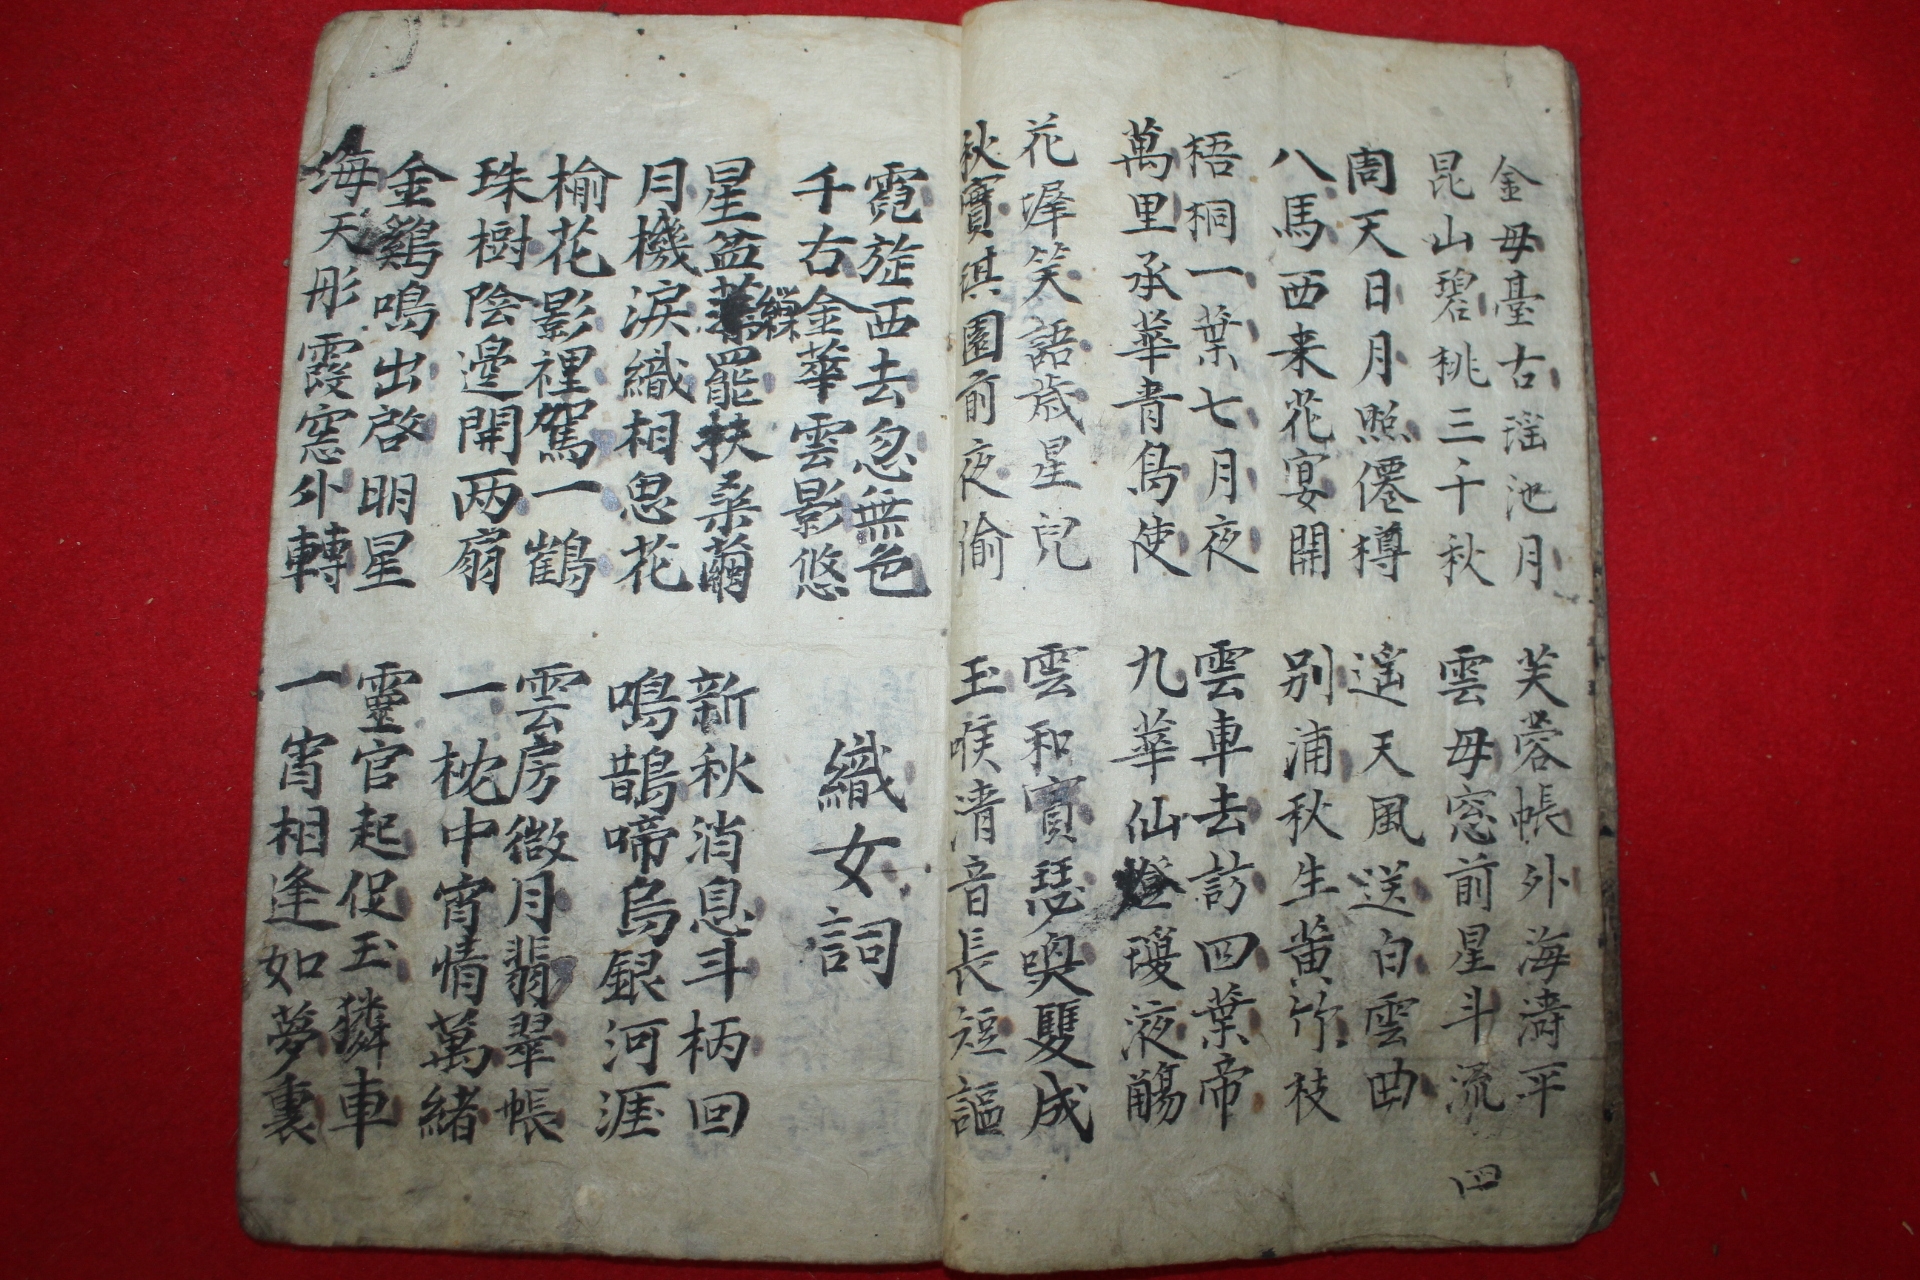 金母臺古瑤池月
昆山碧桃三千秋
芙蓉帳外海濤平
雲母窓前星斗流
周天日月照僊樽
八馬西来花宴開
遙天風送白雲曲
別浦秋生黃竹枝
梧桐一葉七月夜
萬里承華青鳥使
雲車去訪四葉帝
九華仙燈瓊液觴
花墀笑語歲星兒
秋實琪園前夜偷
雲和寶瑟喚雙成
玉喉清音長短謳
四
霓旌西去忽無色
千右金華雲影悠
織女詞
星盆繅罷扶桑繭
月機淚織相思花
新秋消息斗柄回
鳴鵲啼烏銀河涯
榆花影裡駕一鶴
珠樹陰邊開两扇
雲房微月翡翠帳
一枕中宵情萬緒
金鷄鳴出啓明星
海天彤霞窓外轉
靈官起促玉轔車
一宵相逢如夢裏